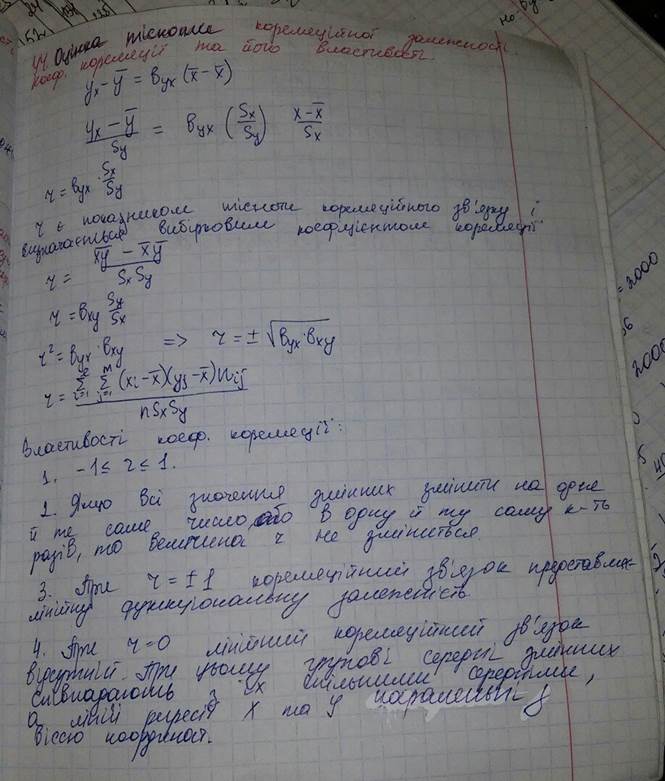 44. Оцінка тісноти кореляційної залежності
коеф. кореляції та його властивості.
yₓ - ȳ = byx (x̄ - x̄)
(yₓ - ȳ)/Sy = byx (Sx/Sy) (x - x̄)/Sx
r = byx · Sx/Sy
r є показником тісноти кореляційного зв'язку і
визначається вибірковим коефіцієнтом кореляції
r = (x̅y̅ - x̄ȳ)/(SxSy)
r = bxy Sy/Sx
r² = byx · bxy => r = ± √(byx · bxy)
r = ∑ ∑ (xi - x̄)(yj - x̄) nij / (nSxSy)
Властивості коеф. кореляції:
1. -1 ≤ r ≤ 1.
2. Якщо всі значення змінних змінити на одне
й те саме число, або в одну й ту саму к-ть
разів, то величина r не зміниться.
3. При r = ± 1 кореляційний зв'язок представля-
лінійну функціональну залежність
4. При r = 0 лінійний кореляційний зв'язок
відсутній. При цьому групові середні змінних
співпадають з їх спільними середніми,
а лінії регресії X та Y паралельні
віссю координат.
= 2000
2000